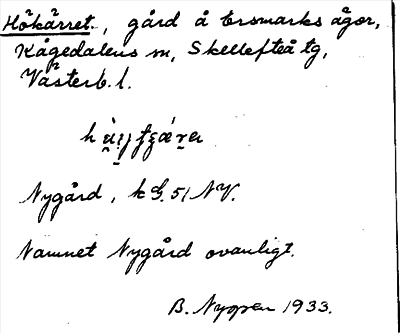 Hökärret., gård å Ersmarks ägor,
Kågedalens sn, Skellefteå tg,
Västerb. l.
Nygård, k G. 51 NV.
Namnet Nygård ovanligt.
B. Nygren 1933.